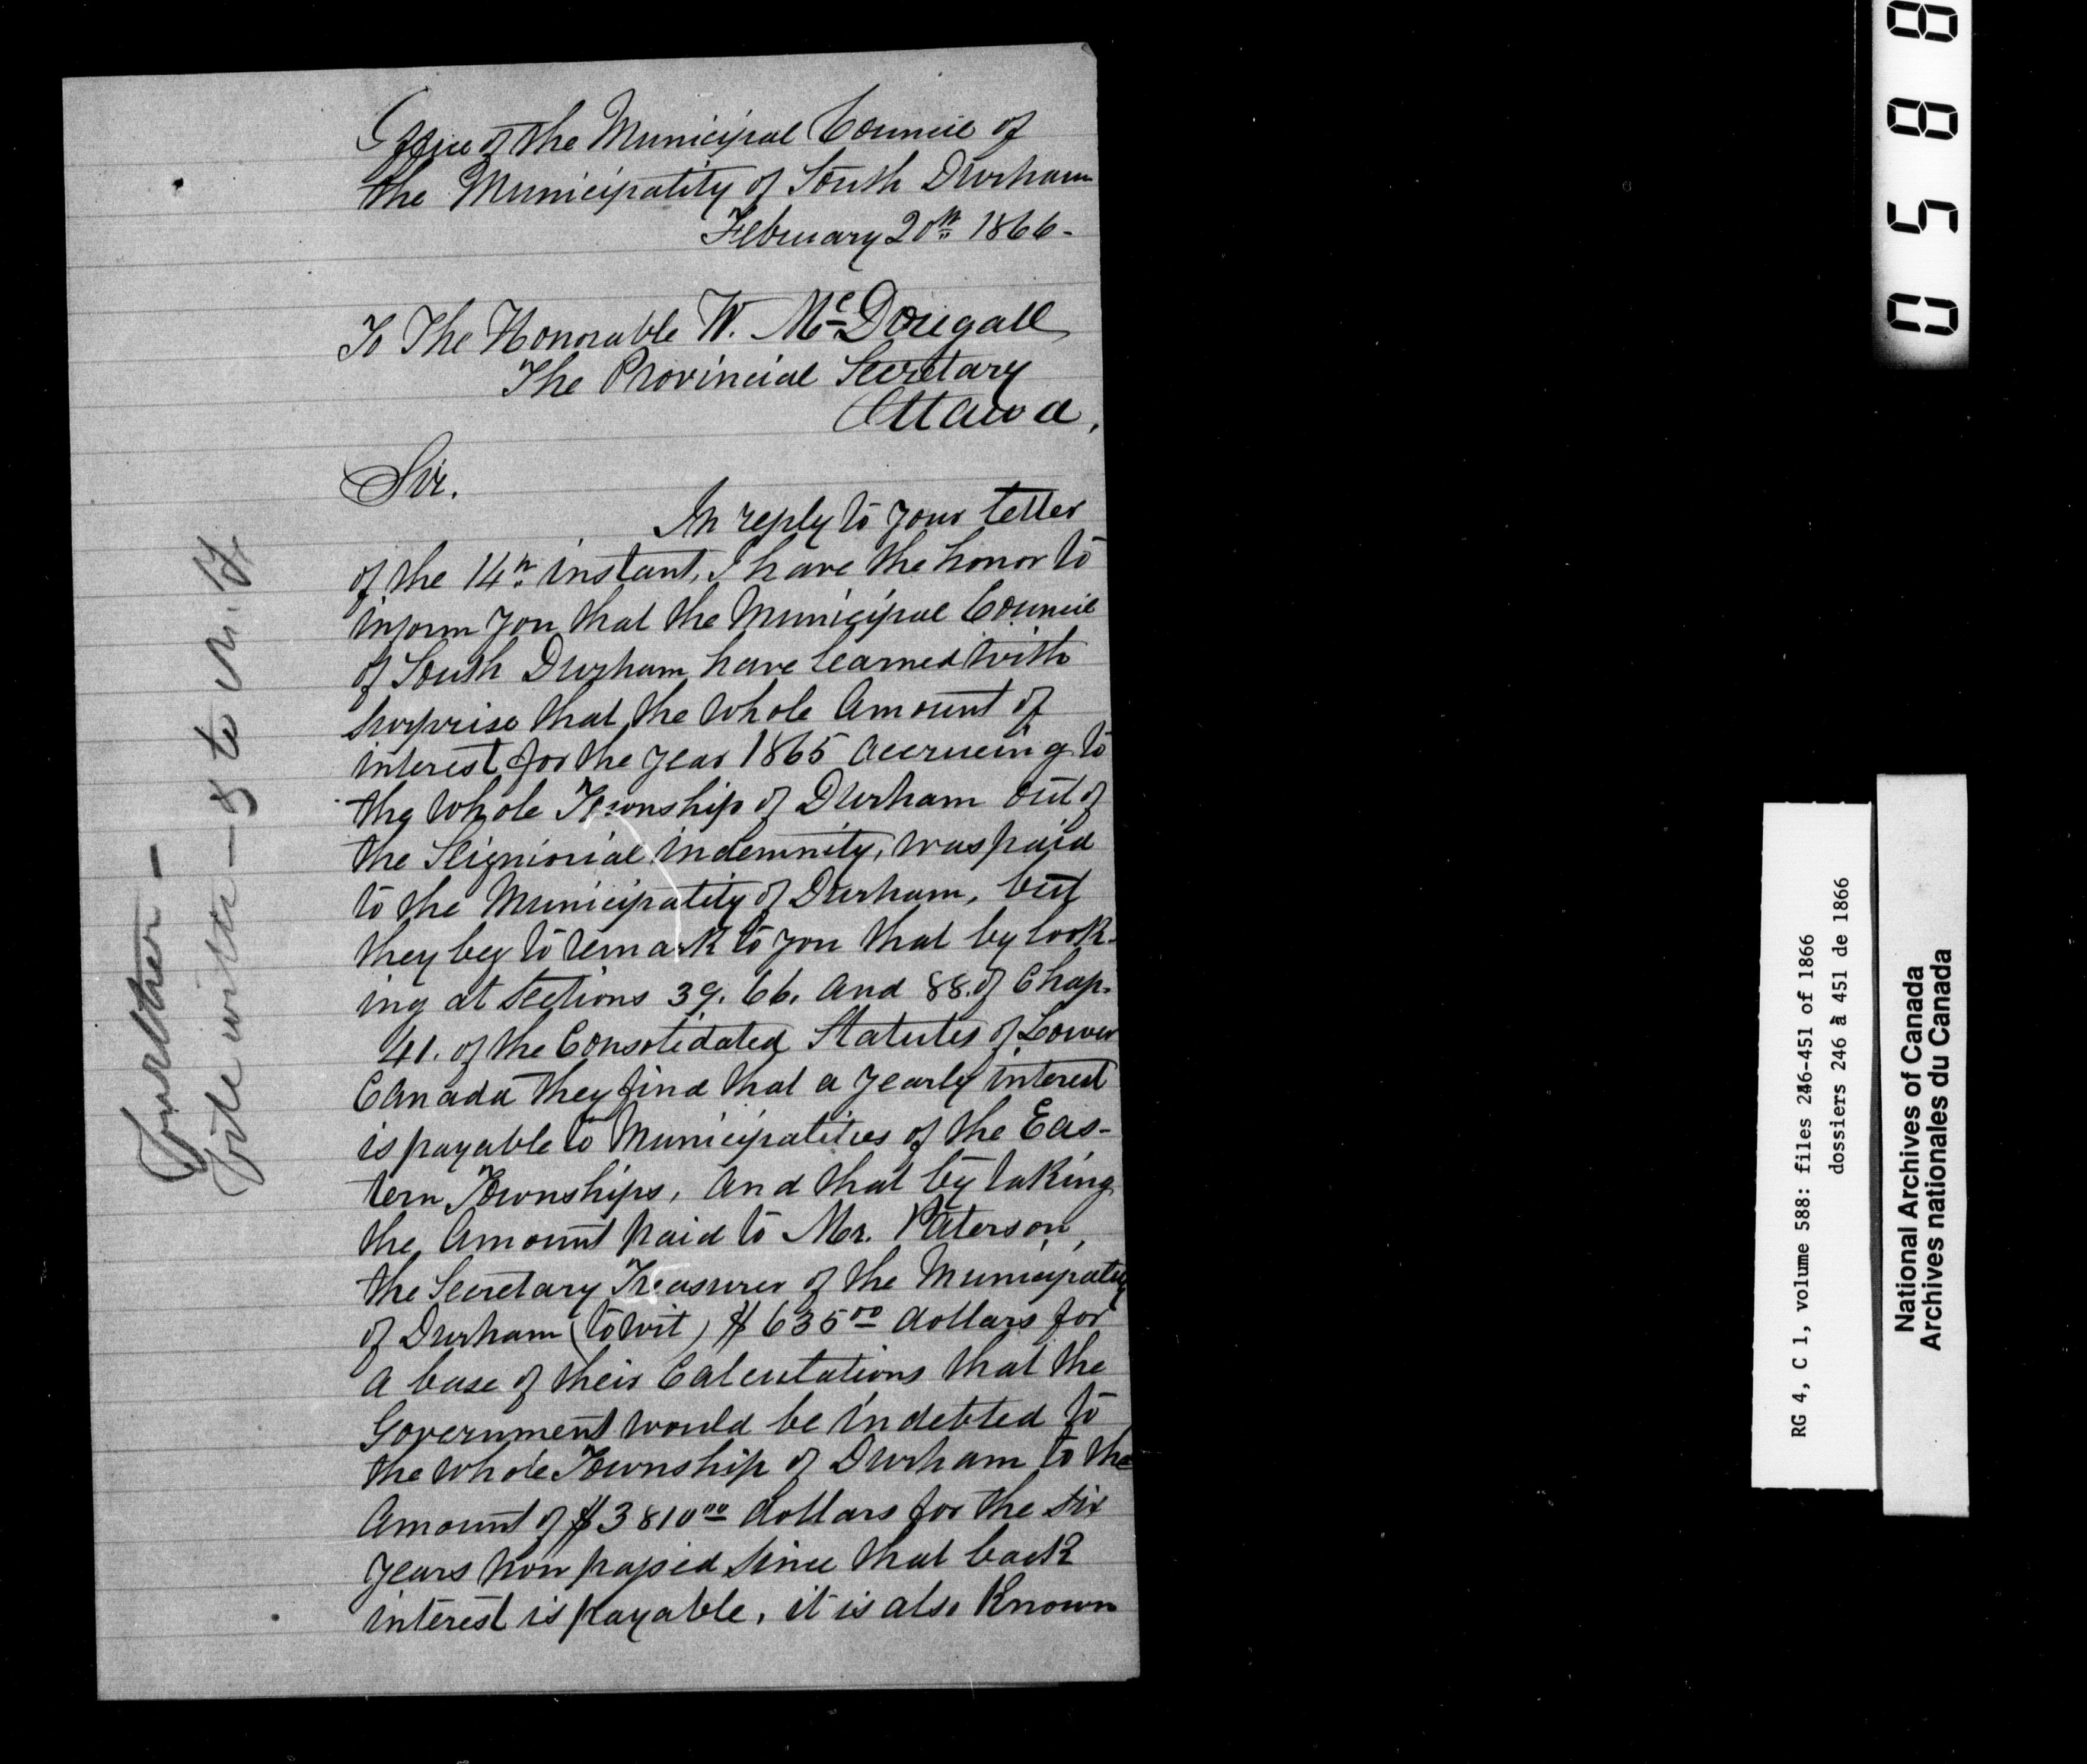 Office of the Municipal Council of
the Municipality of South Durham
February 20th 1866-
To The Honorable W. McDougall
The Provincial Secretary
Ottawa,
Sir.
In reply to your letter
of the 14th instant, I have the honor to
inform you that the Municipal Council
of South Durham have learned with
surprise that the whole Amount of
interest for the year 1865 accrueing to
the whole Township of Durham out of
the Seigniorial indemnity, was paid
to the Municipality of Durham, but
they beg to remark to you that by look-
ing at Sections 39. 66. and 88. of Chap.
41. of the Consolidated Statutes of Lower
Canada they find that a yearly interest
is payable to Municipalities of the Eas-
tern Townships, and that by taking
the Amount paid to Mr. Paterson,
the Secretary Treasurer of the Municipality
of Durham (to wit) $ 635 00 dollars for
a base of their Calculations that the
Government would be indebted to
the whole Township of Durham to the
Amount of $3810 00 dollars for the six
years now passed since that back
interest is payable, it is also Known
Further -
0588
RG 4, C 1, volume 588: files 246-451 of 1866
dossiers 246 à 451 de 1866
National Archives of Canada
Archives nationales du Canada